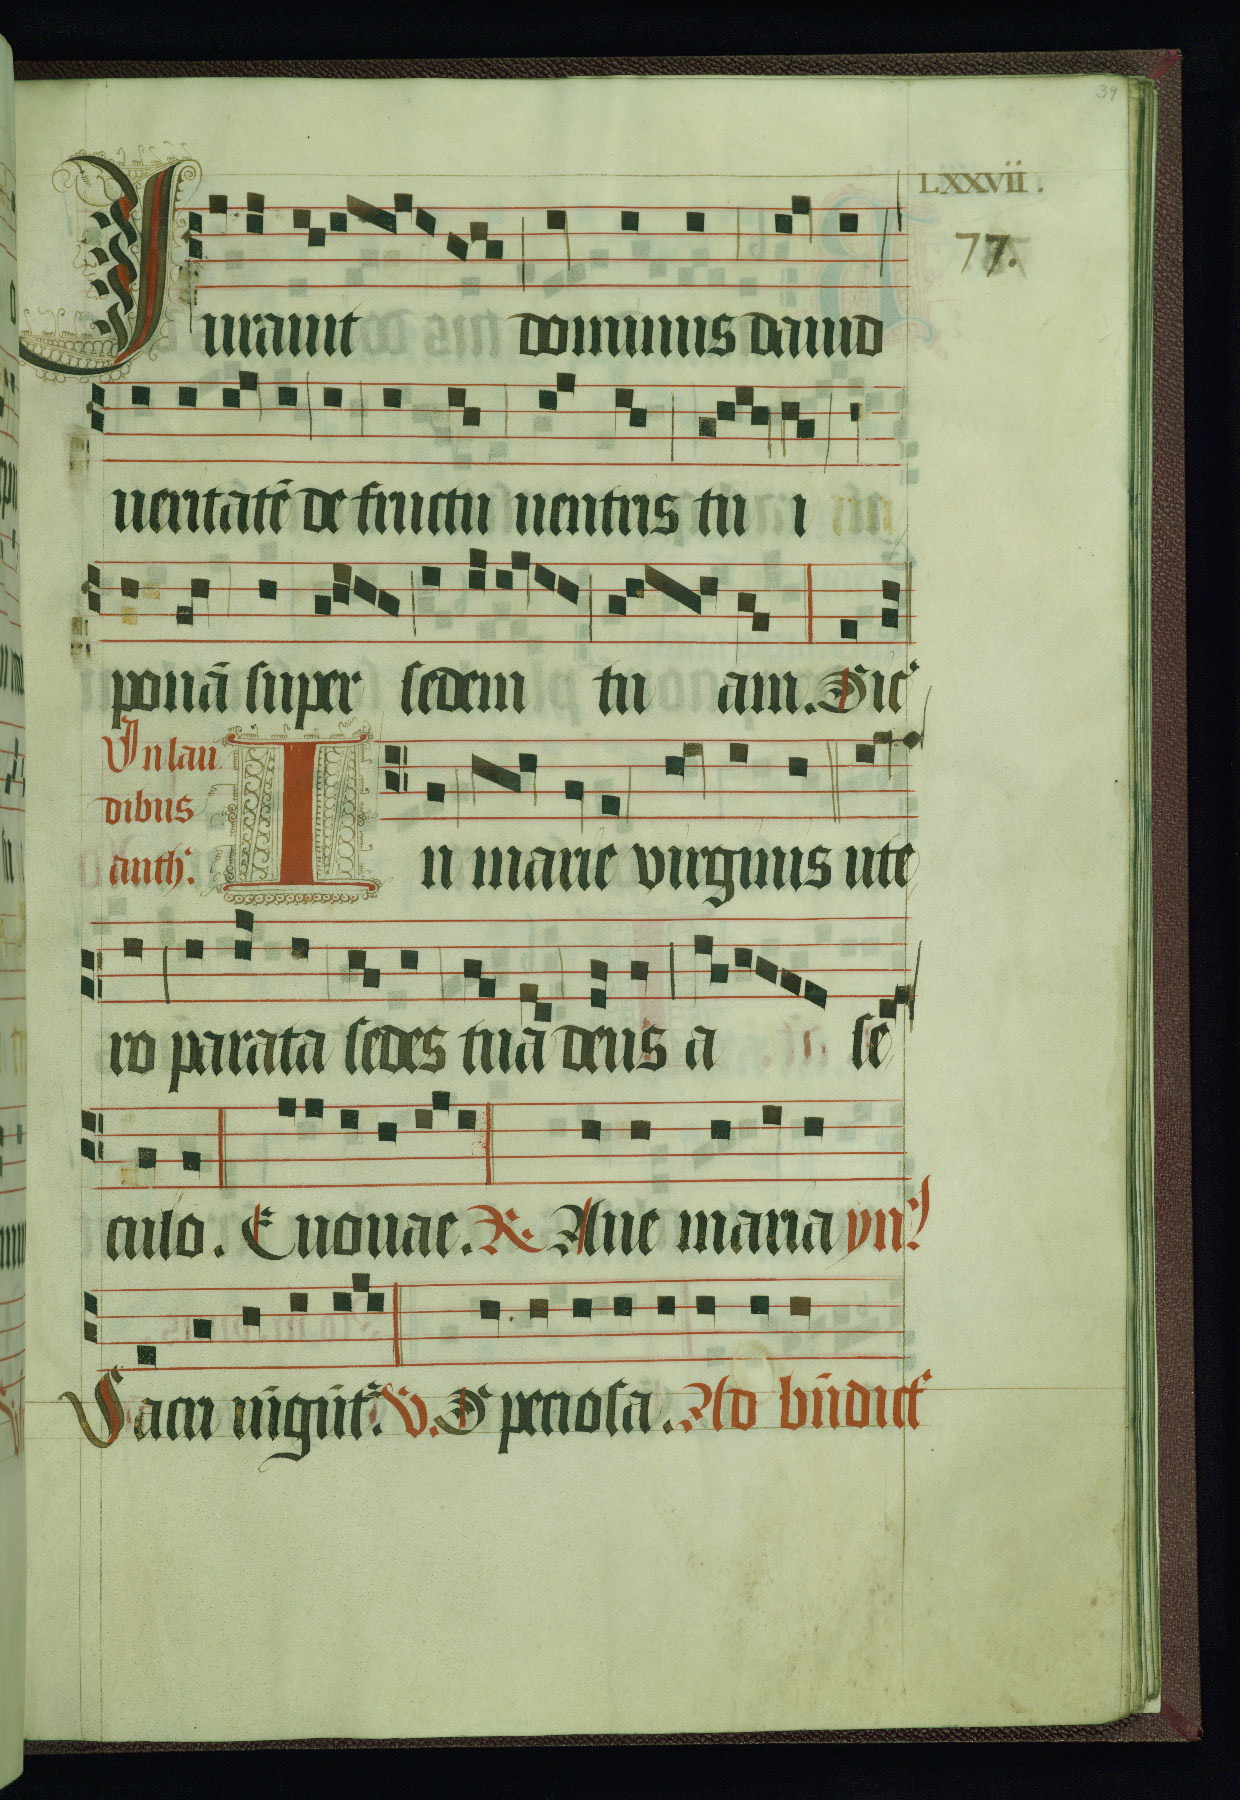 39
LXXVII.
77.
Iurauit dominus dauid
ueritatē de fructu uentris tu i
ponā super sedem tu am. Sic
In lau
dibus
anth. In marie virginis ute
ro parata sedes tua deus a se
culo. Euouae. R. Aue maria yn̄
Sacri V. Speciosa. Ad